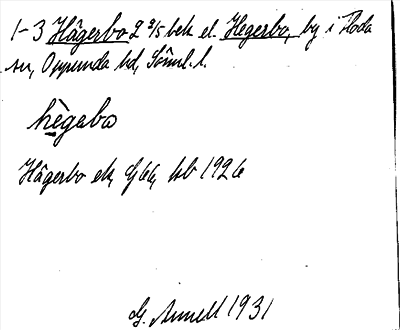 1-3 Hägerbo 2 3/5 bek el. Hegerbo, by i Floda
sn, Oppunda hd, Söml. l.
hègabo
Hägerbo ek, Gj 66, Jsb 1926
G. Annell 1931